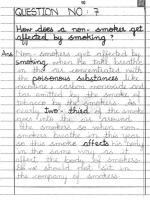 QUESTION NO. : 7
How does a non-smoker get
affected by smoking ?
Ans Non-smokers get affected by
smoking, when he take breathe
in the air concentrated with
poisonous substances like
nicotine, carbon monoxide and
tar emitted by the smoke of
tobacco by the smokers. As
nearly two-third of the smoke
goes into the air around
the smokers so when non-
smokers breathe in this year
so this smoke affects his body
in the same way as it
affect the body of smokers.
So we should not sit in
the company of smokers